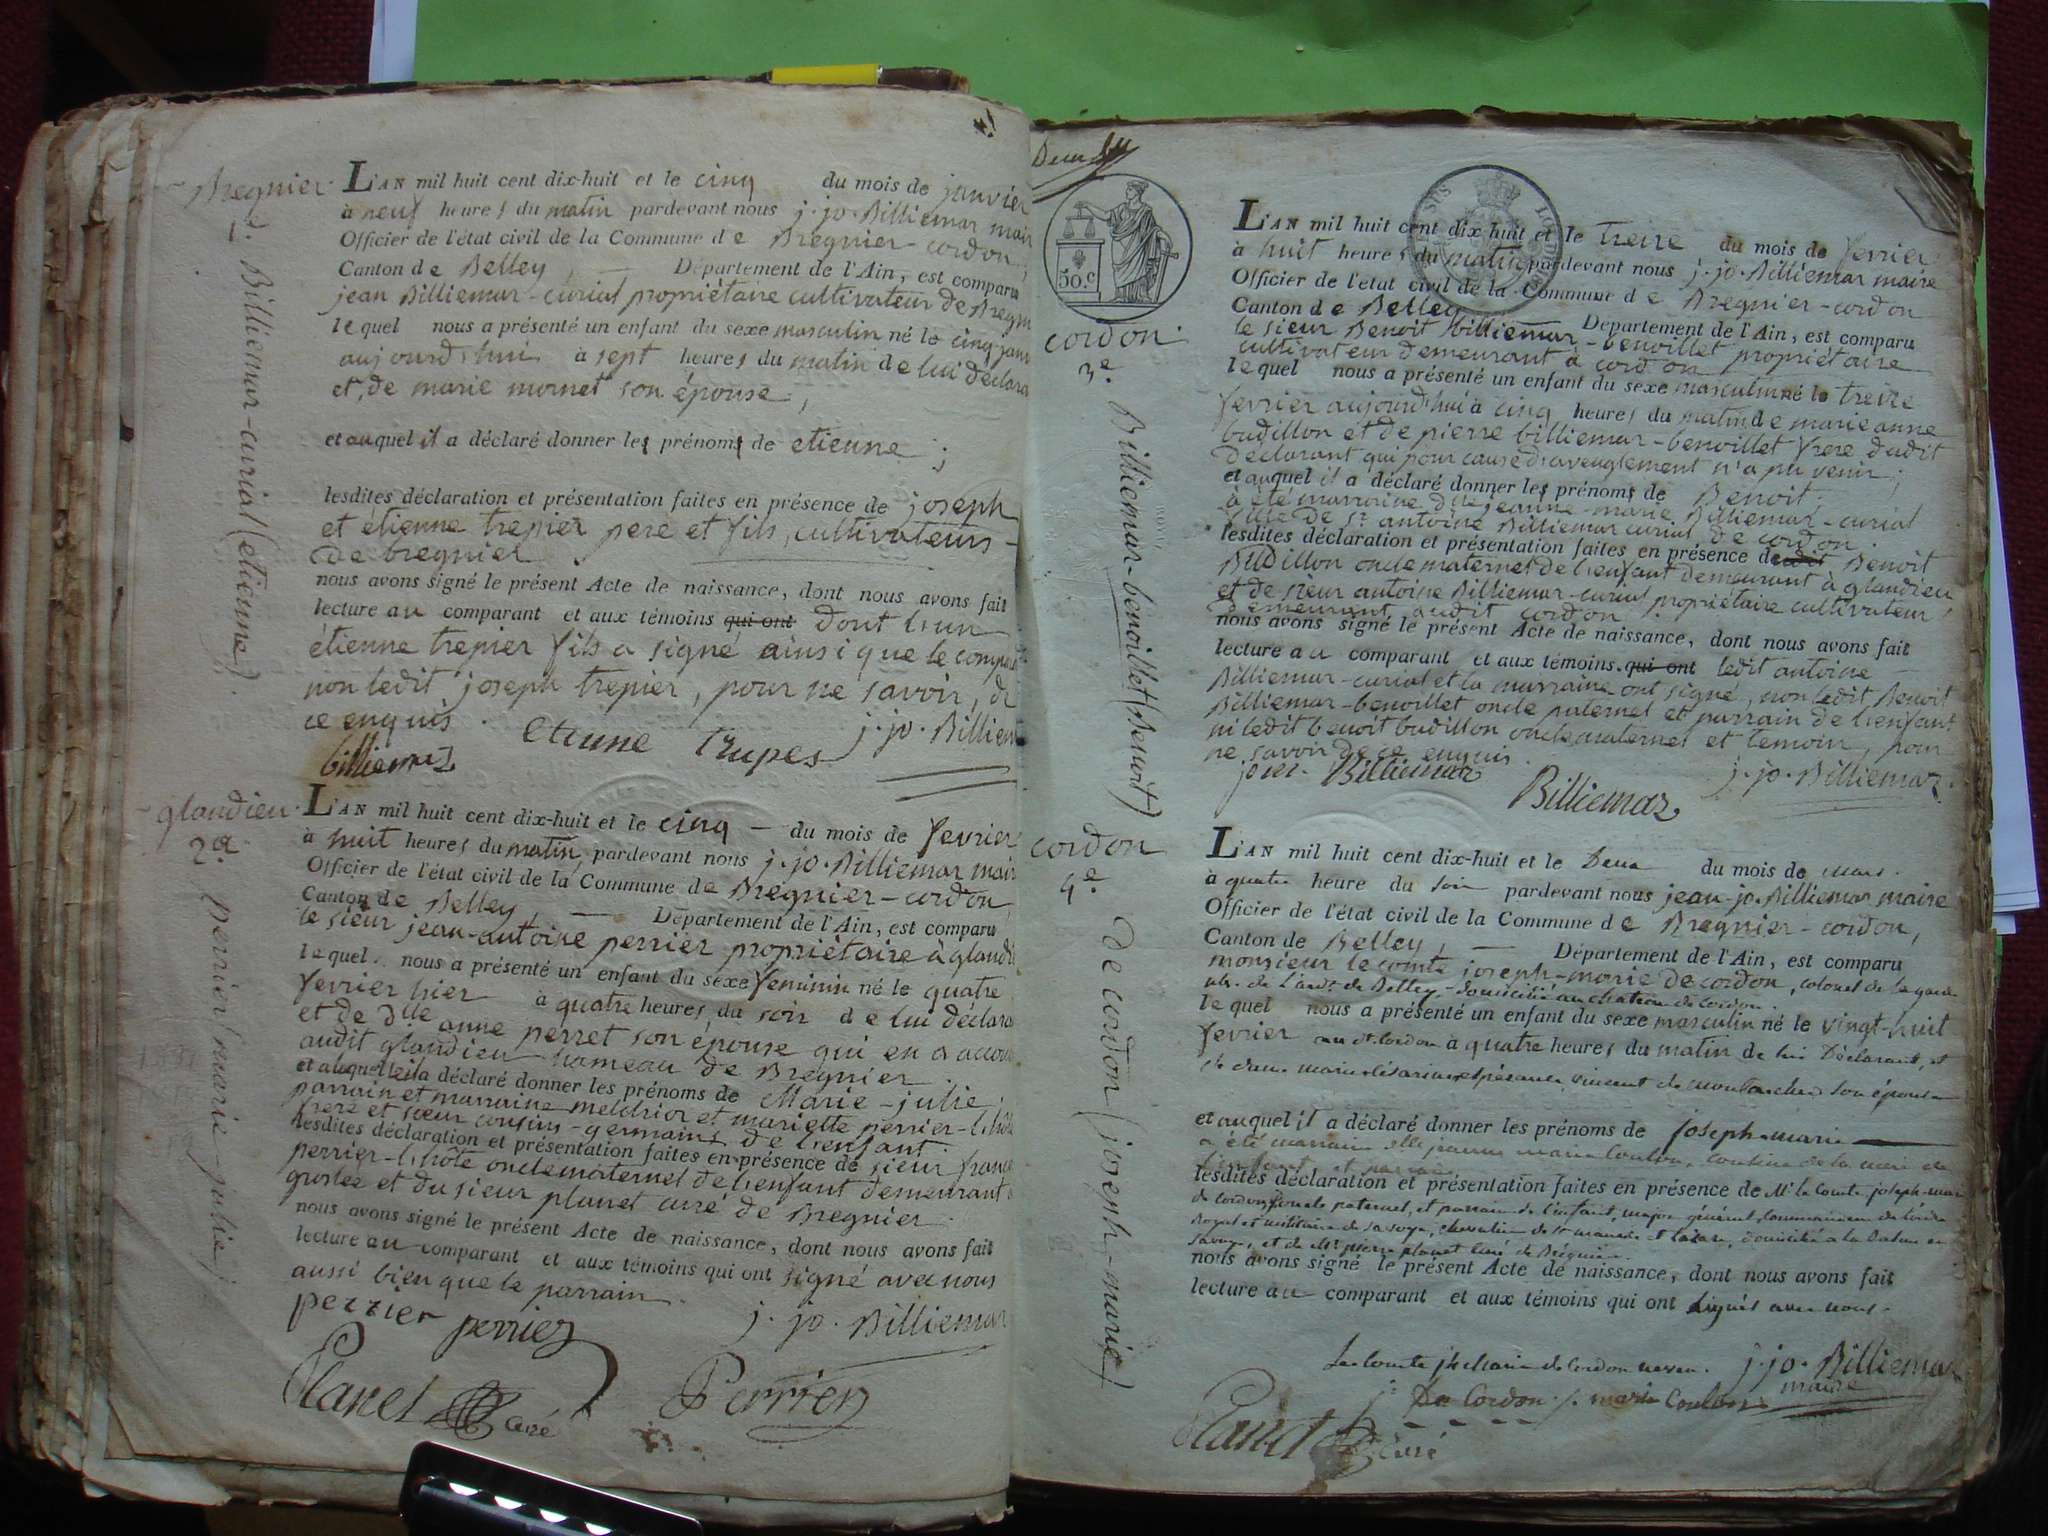 Bregnier
1e. Billiemar-curial (etienne)
L'AN mil huit cent dix-huit et le cinq du mois de janvier
à neuf heures du matin pardevant nous j. jo. Billiemar mair
Officier de l'état civil de la Commune de Bregnier-cordon,
Canton de Belley, Département de l'Ain, est comparu
jean Billiemar-curial propriétaire cultivateur de Bregn
lequel nous a présenté un enfant du sexe masculin né le cinq jan
aujourd'hui à sept heures du matin de lui déclara
et de marie mornet son épouse,
et auquel il a déclaré donner les prénoms de etienne ;
lesdites déclaration et présentation faites en présence de joseph
et étienne trepier pere et fils, cultivateurs
de bregnier
nous avons signé le présent Acte de naissance, dont nous avons fait
lecture au comparant et aux témoins qui ont dont l'un
étienne trepier fils a signé ainsi que le compa
non ledit joseph trepier, pour ne savoir, de
ce enquis.
billiemaz Etienne j. jo. Billiem
glandieu
2e. perrier (marie-julie)
L'AN mil huit cent dix-huit et le cinq du mois de fevrier
à huit heures du matin, pardevant nous j. jo. Billiemar mair
Officier de l'état civil de la Commune de Bregnier-cordon,
Canton de Belley, Département de l'Ain, est comparu
le sieur jean-antoine perrier propriétaire à gland
lequel nous a présenté un enfant du sexe feminin né le quatre
fevrier hier à quatre heures du soir de lui déclara
et de dlle anne perret son épouse qui en a accou
audit glandieu hameau de Bregnier.
et auquel il a déclaré donner les prénoms de Marie-julie.
parrain et marraine melchior et mariette perrier-l'hôte
frere et soeur cousins-germains de l'enfant.
lesdites déclaration et présentation faites en présence de sieur franc
perrier-l'hôte oncle maternel de l'enfant demeurant à
groslée et du sieur planet curé de Bregnier.
nous avons signé le présent Acte de naissance, dont nous avons fait
lecture au comparant et aux témoins qui ont signé avec nous
aussi bien que le parrain.
perrier perrier j. jo. Billiemar
Planet curé Perrier
50.c
cordon
3e. Billiemar-benoillet (Benoit)
L'AN mil huit cent dix huit et le treize du mois de fevrier
à huit heures du matin pardevant nous j. jo. Billiemar maire
Officier de l'état civil de la Commune de Bregnier-cordon
Canton de Belley Département de l'Ain, est comparu
le sieur Benoit billiemar-benoillet propriétaire
cultivateur demeurant à cordon
lequel nous a présenté un enfant du sexe masculin né le treize
fevrier aujourd'hui à cinq heures du matin de marie anne
budillon et de pierre billiemar-benoillet frere dudit
déclarant qui pour cause d'aveuglement n'a pu venir ;
et auquel il a déclaré donner les prénoms de Benoit.
à été marraine dlle jeanne-marie Billiemar-curial
fille de sr antoine Billiemar curial de cordon.
lesdites déclaration et présentation faites en présence de Benoit
Budillon oncle maternel de l'enfant demeurant à glandieu
et de sieur antoine Billiemar-curial propriétaire cultivateur
demeurant audit cordon
nous avons signé le présent Acte de naissance, dont nous avons fait
lecture au comparant et aux témoins qui ont ledit antoine
Billiemar-curial et la marraine ont signé, non ledit Benoit
Billiemar-benoillet oncle paternel et parrain de l'enfant
ni ledit benoit budillon oncle maternel et temoin, pour
ne savoir de ce enquis.
Billiemaz Billiemaz j. jo. Billiemaz.
cordon
4e. de cordon (joseph-marie)
L'AN mil huit cent dix-huit et le Deux du mois de mars.
à quatre heure du soir pardevant nous jean-jo. Billiemar maire
Officier de l'état civil de la Commune de Bregnier-cordon,
Canton de Belley, Département de l'Ain, est comparu
monsieur le comte joseph-marie de cordon, colonel de la garde
nle. de l'ardt. de Belley, domicilié au chateau de cordon.
lequel nous a présenté un enfant du sexe masculin né le vingt-huit
fevrier au dt. cordon à quatre heures du matin de lui Déclarant, et
de dame marie vincent de son épouse
et auquel il a déclaré donner les prénoms de joseph-marie
a été marraine dlle jeanne marie Coulon, cousine de la mère de
l'enfant
lesdites déclaration et présentation faites en présence de Mr. le Comte joseph-mar
de cordon paternel, et parrain de l'enfant, major général, Commandeur de l'ordre
Royal et militaire de savoye, chevalier de st maurice et lazare, domicilié à la Balme en
savoye, et de Mr pierre planet Curé de Brégnier.
nous avons signé le présent Acte de naissance, dont nous avons fait
lecture au comparant et aux témoins qui ont signés avec nous.
Le Comte jh Marie de Cordon j. jo. Billiemaz
maire
De Cordon j. marie Coulon
Planet curé